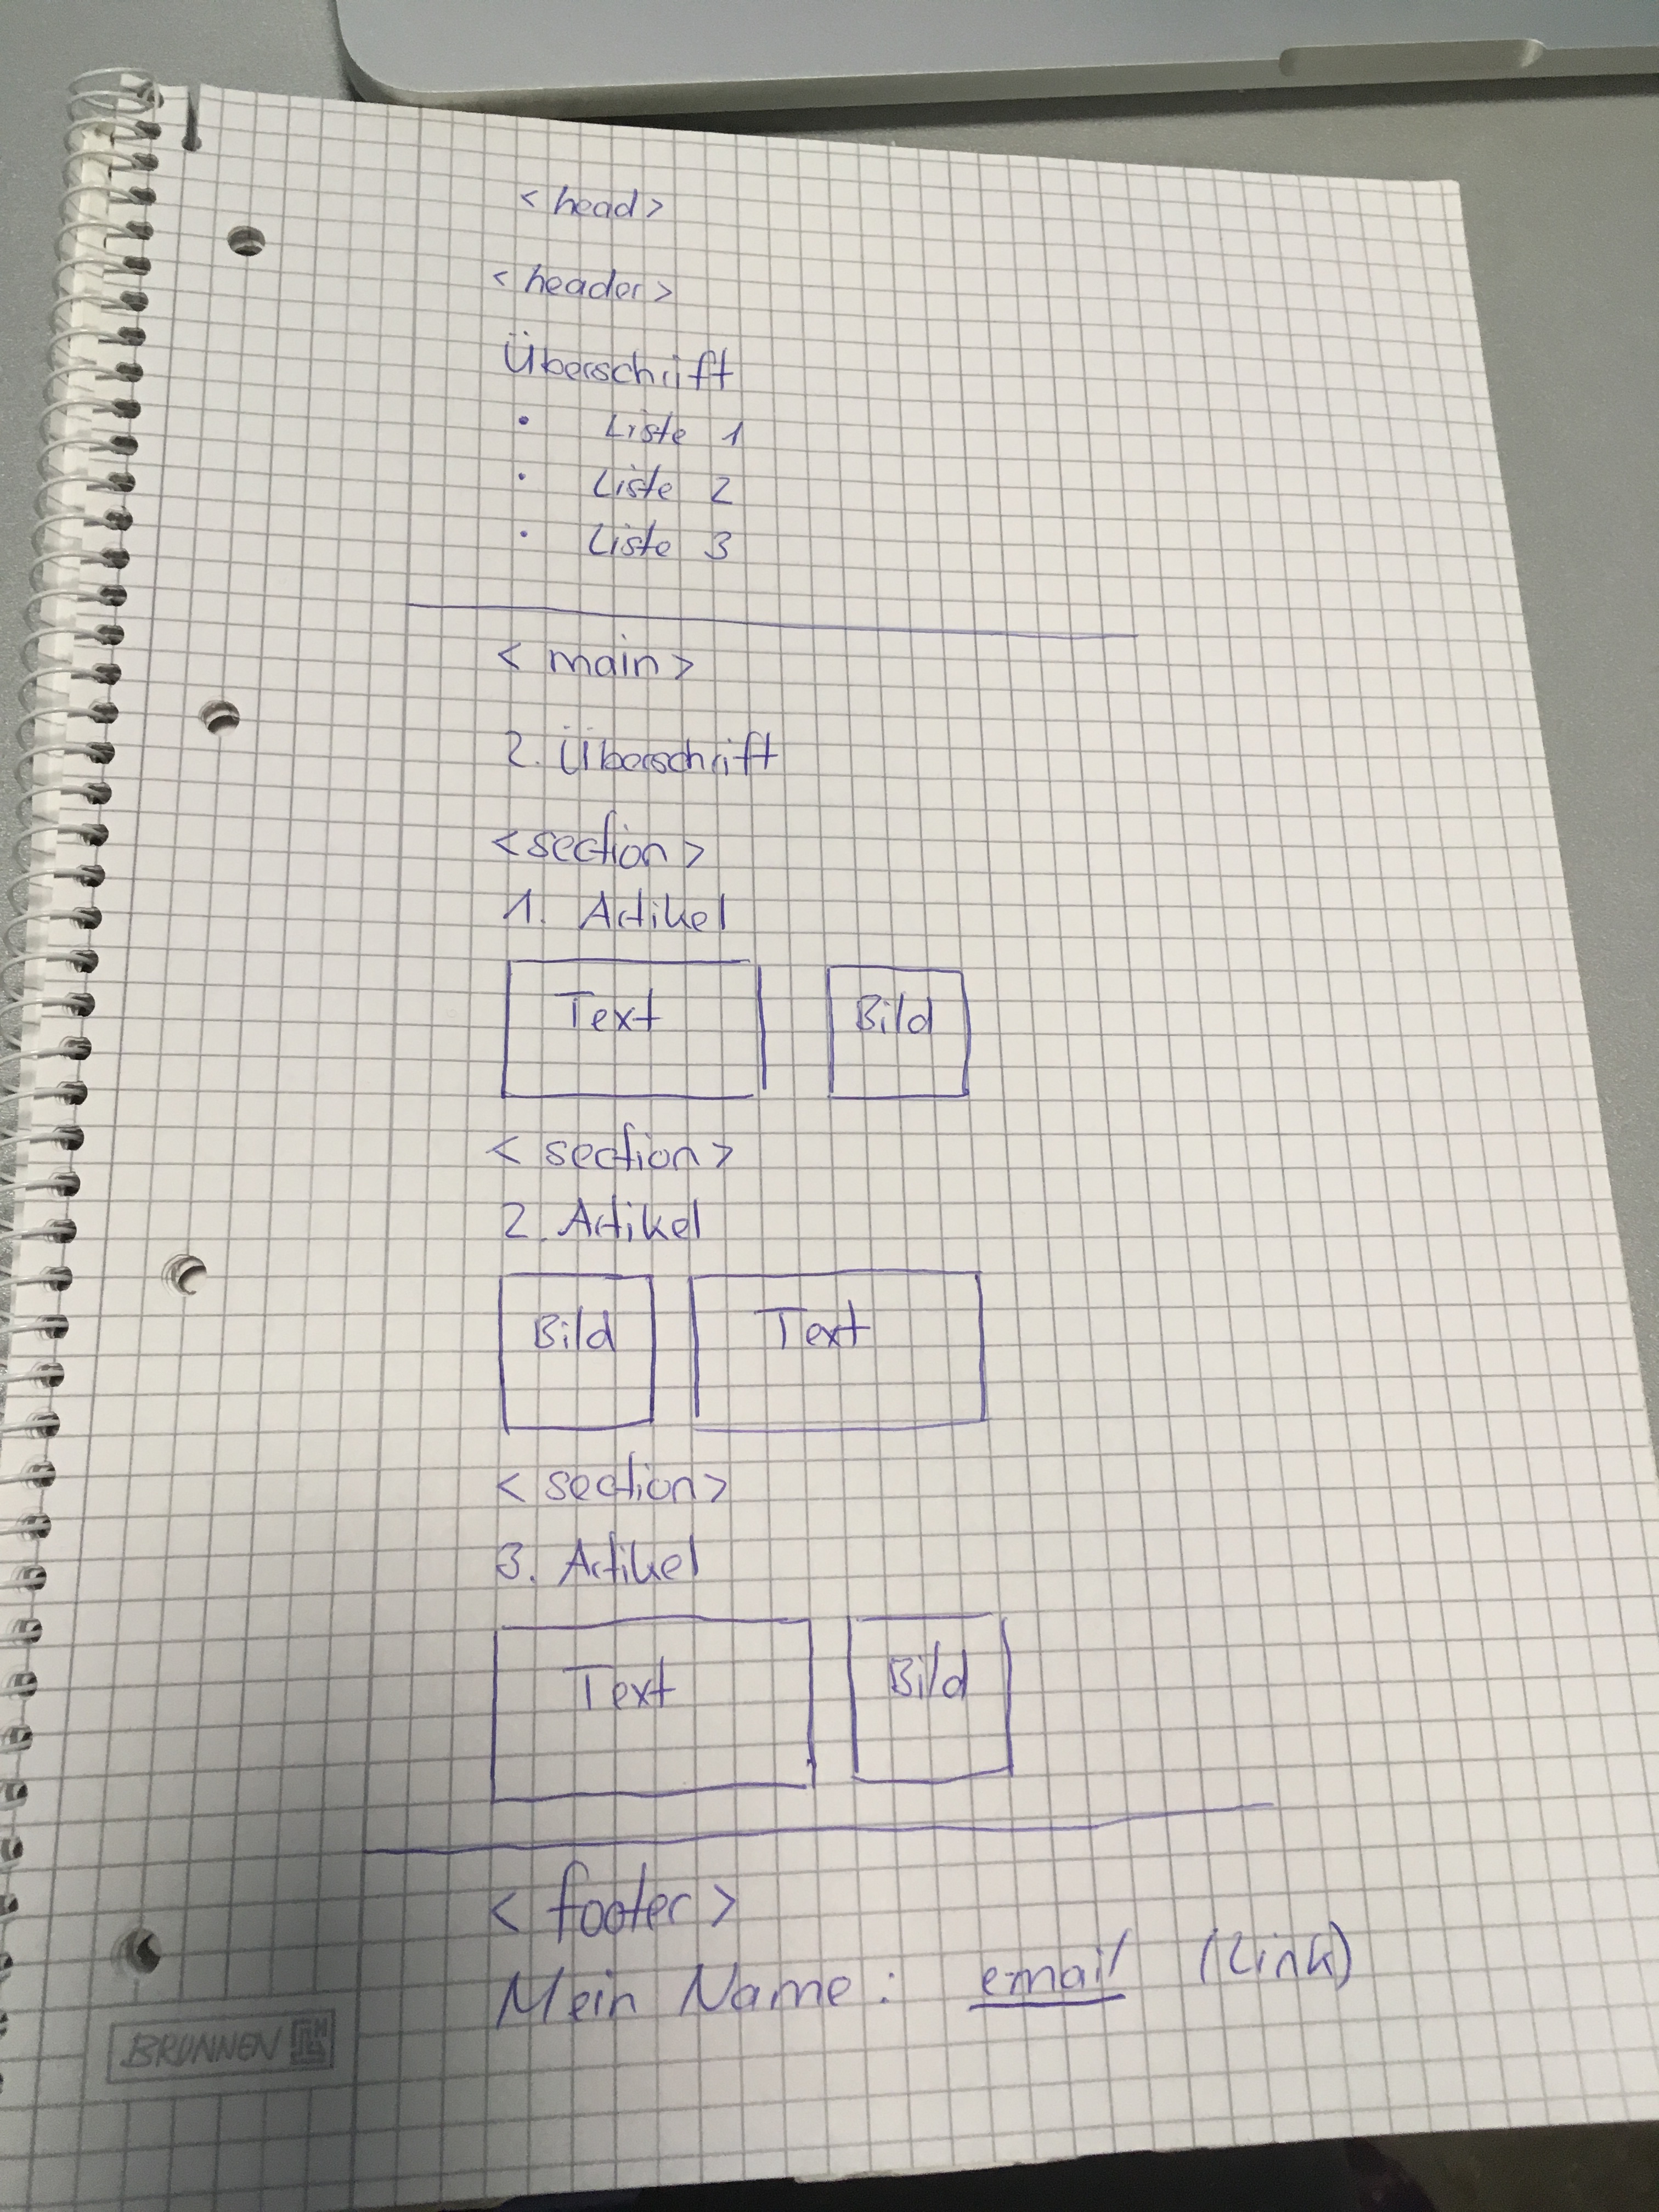 < head >
< header >
Überschrift
• Liste 1
• Liste 2
• Liste 3
< main >
2. Überschrift
< section >
1. Artikel
Text Bild
< section >
2. Artikel
Bild Text
< section >
3. Artikel
Text Bild
< footer >
Mein Name : email (Link)
BRUNNEN